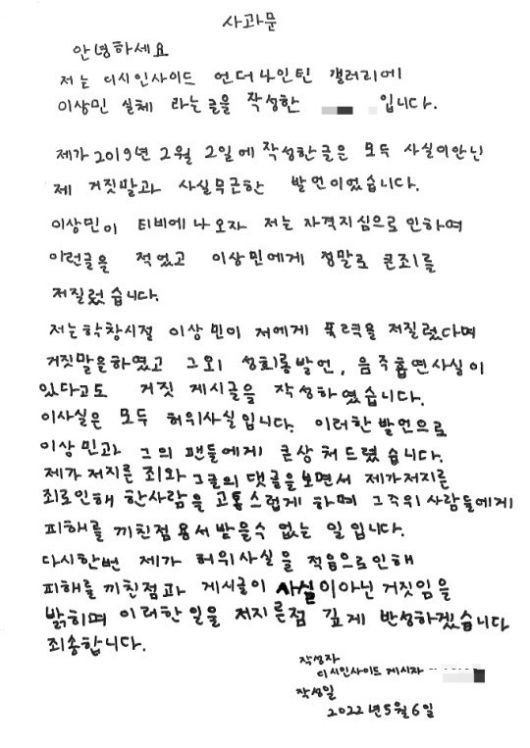 사과문
안녕하세요
저는 디시인사이드 언더나인틴 갤러리에
이상민 실체 라는글을 작성한 입니다.
제가 2019년 2월 2일에 작성한글은 모두 사실이안닌
제 거짓말과 사실무근한 발언이었습니다.
이상민이 티비에 나오자 저는 자격지심으로 인하여
이런글을 적었고 이상민에게 정말로 큰죄를
저질렀습니다.
저는학창시절 이상민이 저에게 폭력을 저질렀다며
거짓말을하였고 그외 성희롱발언, 음주흡연사실이
있다고도 거짓 게시글을 작성하였습니다.
이사실은 모두 허위사실입니다. 이러한발언으로
이상민과 그의 팬들에게 큰상처드렸습니다.
제가저지른 죄와 그글의 댓글을보면서 제가저지른
죄로인해 한사람을 고통스럽게 하며 그주위사람들에게
피해를 끼친점용서받을수 없는 일입니다.
다시한번 제가 허위사실을 적음으로인해
피해를끼친점과 게시글이 사실이아닌거짓임을
밝히며 이러한일을 저지른점 깊게 반성하겠습니다
죄송합니다.
작성자
디시인사이드 게시자
작성일
2022년5월6일